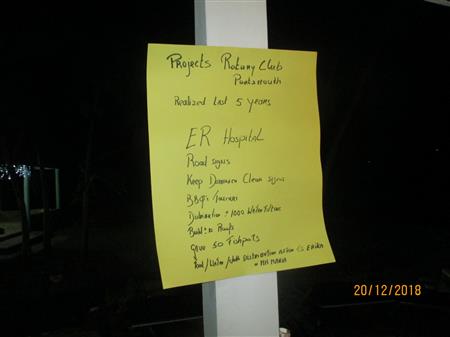 Projects Rotary Club
Portsmouth
Realized last 5 years
ER Hospital
Road signs
Keep Dominica Clean signs
BBQ's
Distribution ± 1000 Water Filters
Build 10 Roofs
Gave 50 Fishpots
Food/Water/ Distribution action TS ERIKA
MARIA
20/12/2018